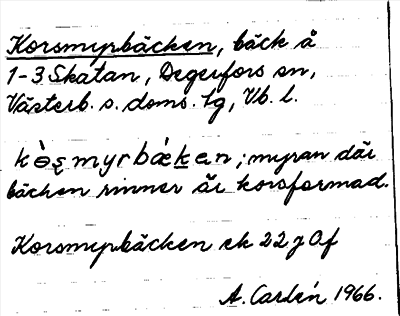 Korsmyrbäcken, bäck å
1-3 Skatan, Degerfors sn,
Västerb. s. doms. lg, Vb. l.
kòs̨myrbæ̀ḵen; myran där
bäcken rinner är korsformad.
Korsmyrbäcken ek 22 j 0f
A. Carlén 1966.